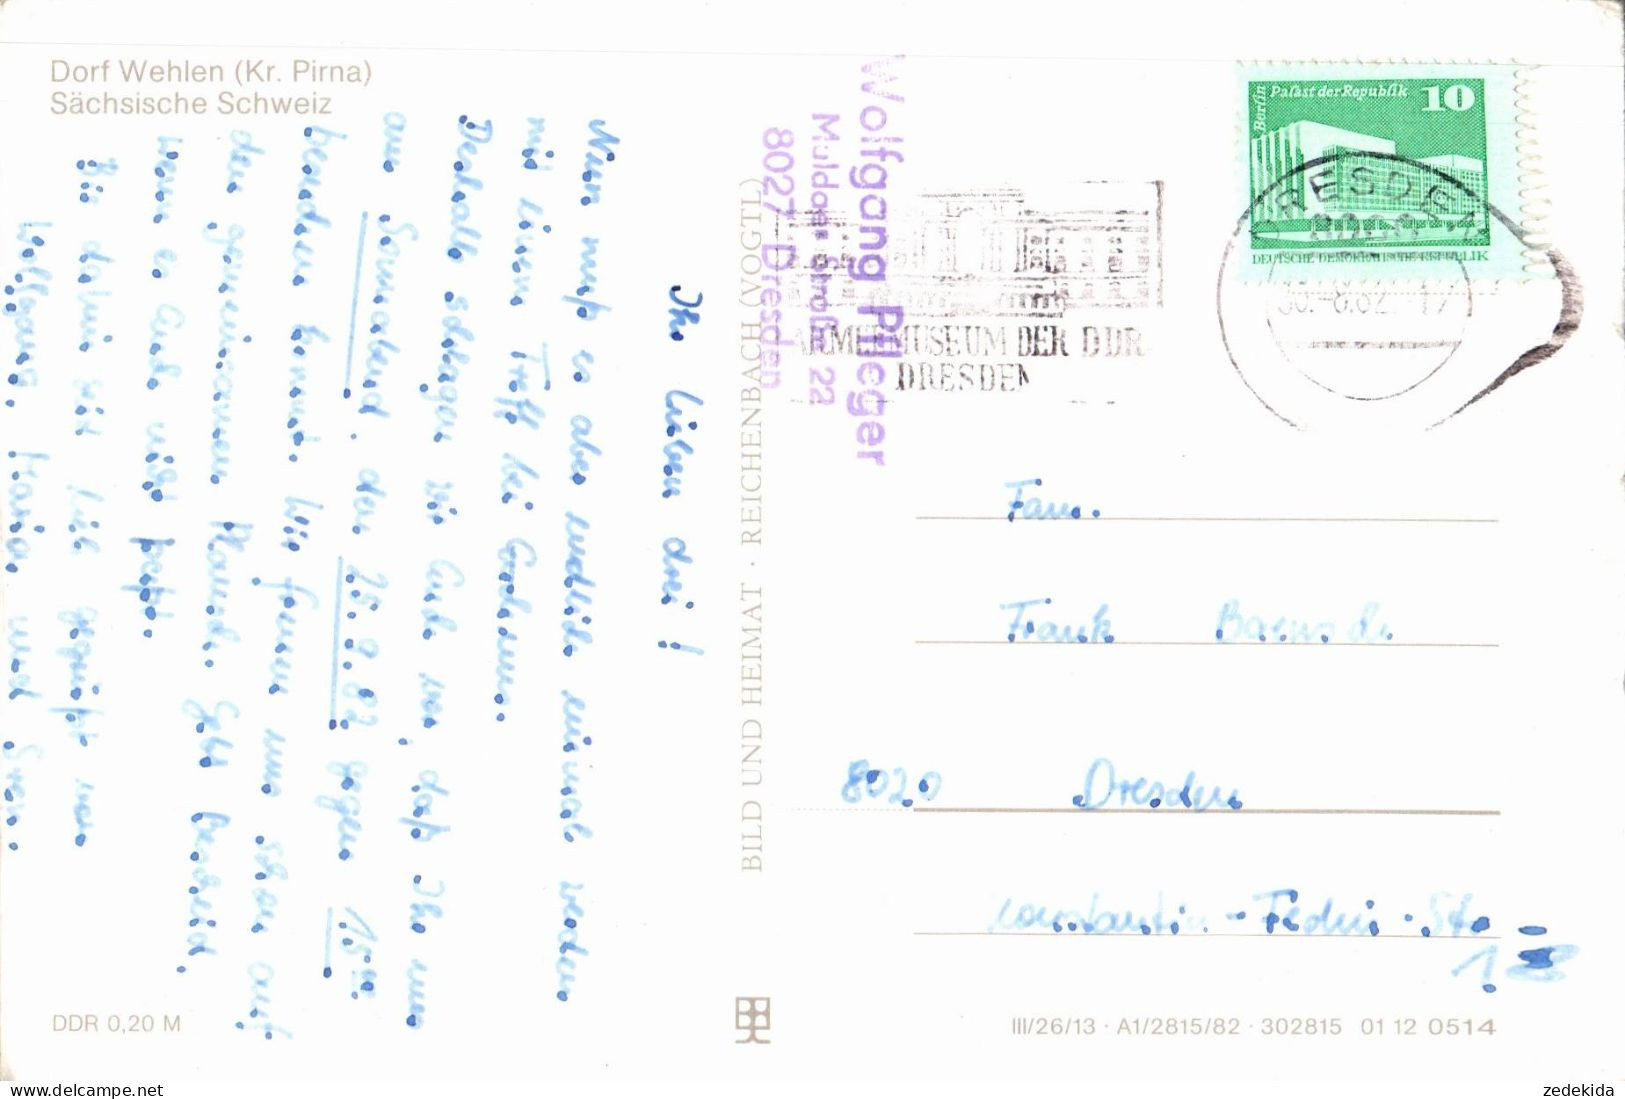 Dorf Wehlen (Kr. Pirna)
Sächsische Schweiz
Ihr lieben drei!
Nun muß es aber endlich einmal werden
mit einem Treff bei
Deshalb schlagen wir Euch vor, daß Ihr uns
am Sonnabend, den 25.9.82 gegen 15.00
besuchen kommt. Wir freuen uns schon auf
den gemeinsamen Plausch. Gebt Bescheid,
wenn es Euch nicht paßt.
Bis dahin seit lieb gegrüßt von
Wolfgang, Maria und Sven.
DDR 0,20 M
BILD UND HEIMAT · REICHENBACH (VOGTL)
Wolfgang Pfleger
Muldaer Straße 22
8027 Dresden
ARMEEMUSEUM DER DDR
DRESDEN
Berlin
Palast der Republik
10
DEUTSCHE DEMOKRATISCHE REPUBLIK
DRESDEN
Fam.
Frank
8020 Dresden
Constantin-Fedin-Str
III/26/13 · A1/2815/82 · 302815 01 12 0514
zedekida